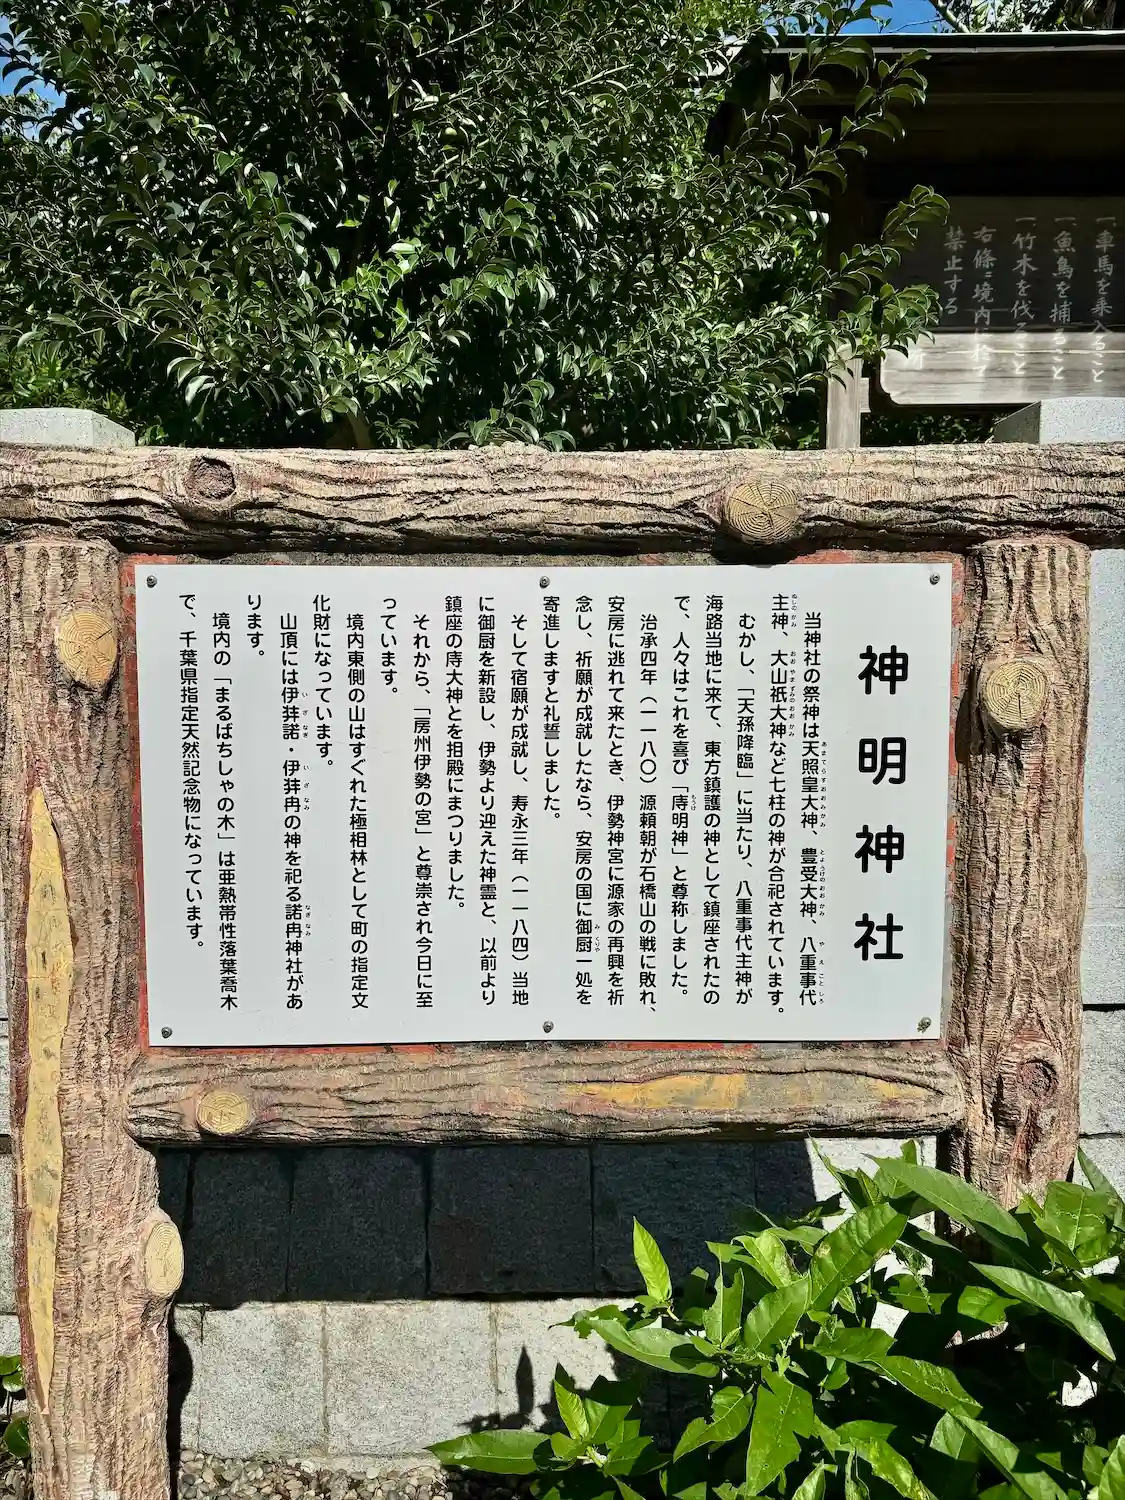 神明神社
当神社の祭神は天照皇大神、豊受大神、八重事代
主神、大山祇大神など七柱の神が合祀されています。
むかし、「天孫降臨」に当たり、八重事代主神が
海路当地に来て、東方鎮護の神として鎮座されたの
で、人々はこれを喜び「庤明神」と尊称しました。
治承四年（一一八〇）源頼朝が石橋山の戦に敗れ、
安房に逃れて来たとき、伊勢神宮に源家の再興を祈
念し、祈願が成就したなら、安房の国に御厨一処を
寄進しますと礼誓しました。
そして宿願が成就し、寿永三年（一一八四）当地
に御厨を新設し、伊勢より迎えた神霊と、以前より
鎮座の庤大神とを担殿にまつりました。
それから、「房州伊勢の宮」と尊崇され今日に至
っています。
境内東側の山はすぐれた極相林として町の指定文
化財になっています。
山頂には伊弉諾・伊弉冉の神を祀る諾冉神社があ
ります。
境内の「まるばちしゃの木」は亜熱帯性落葉喬木
で、千葉県指定天然記念物になっています。
一車馬を乗入ること
一魚鳥を捕ること
一竹木を伐ること
右條々境内に於て
禁止する